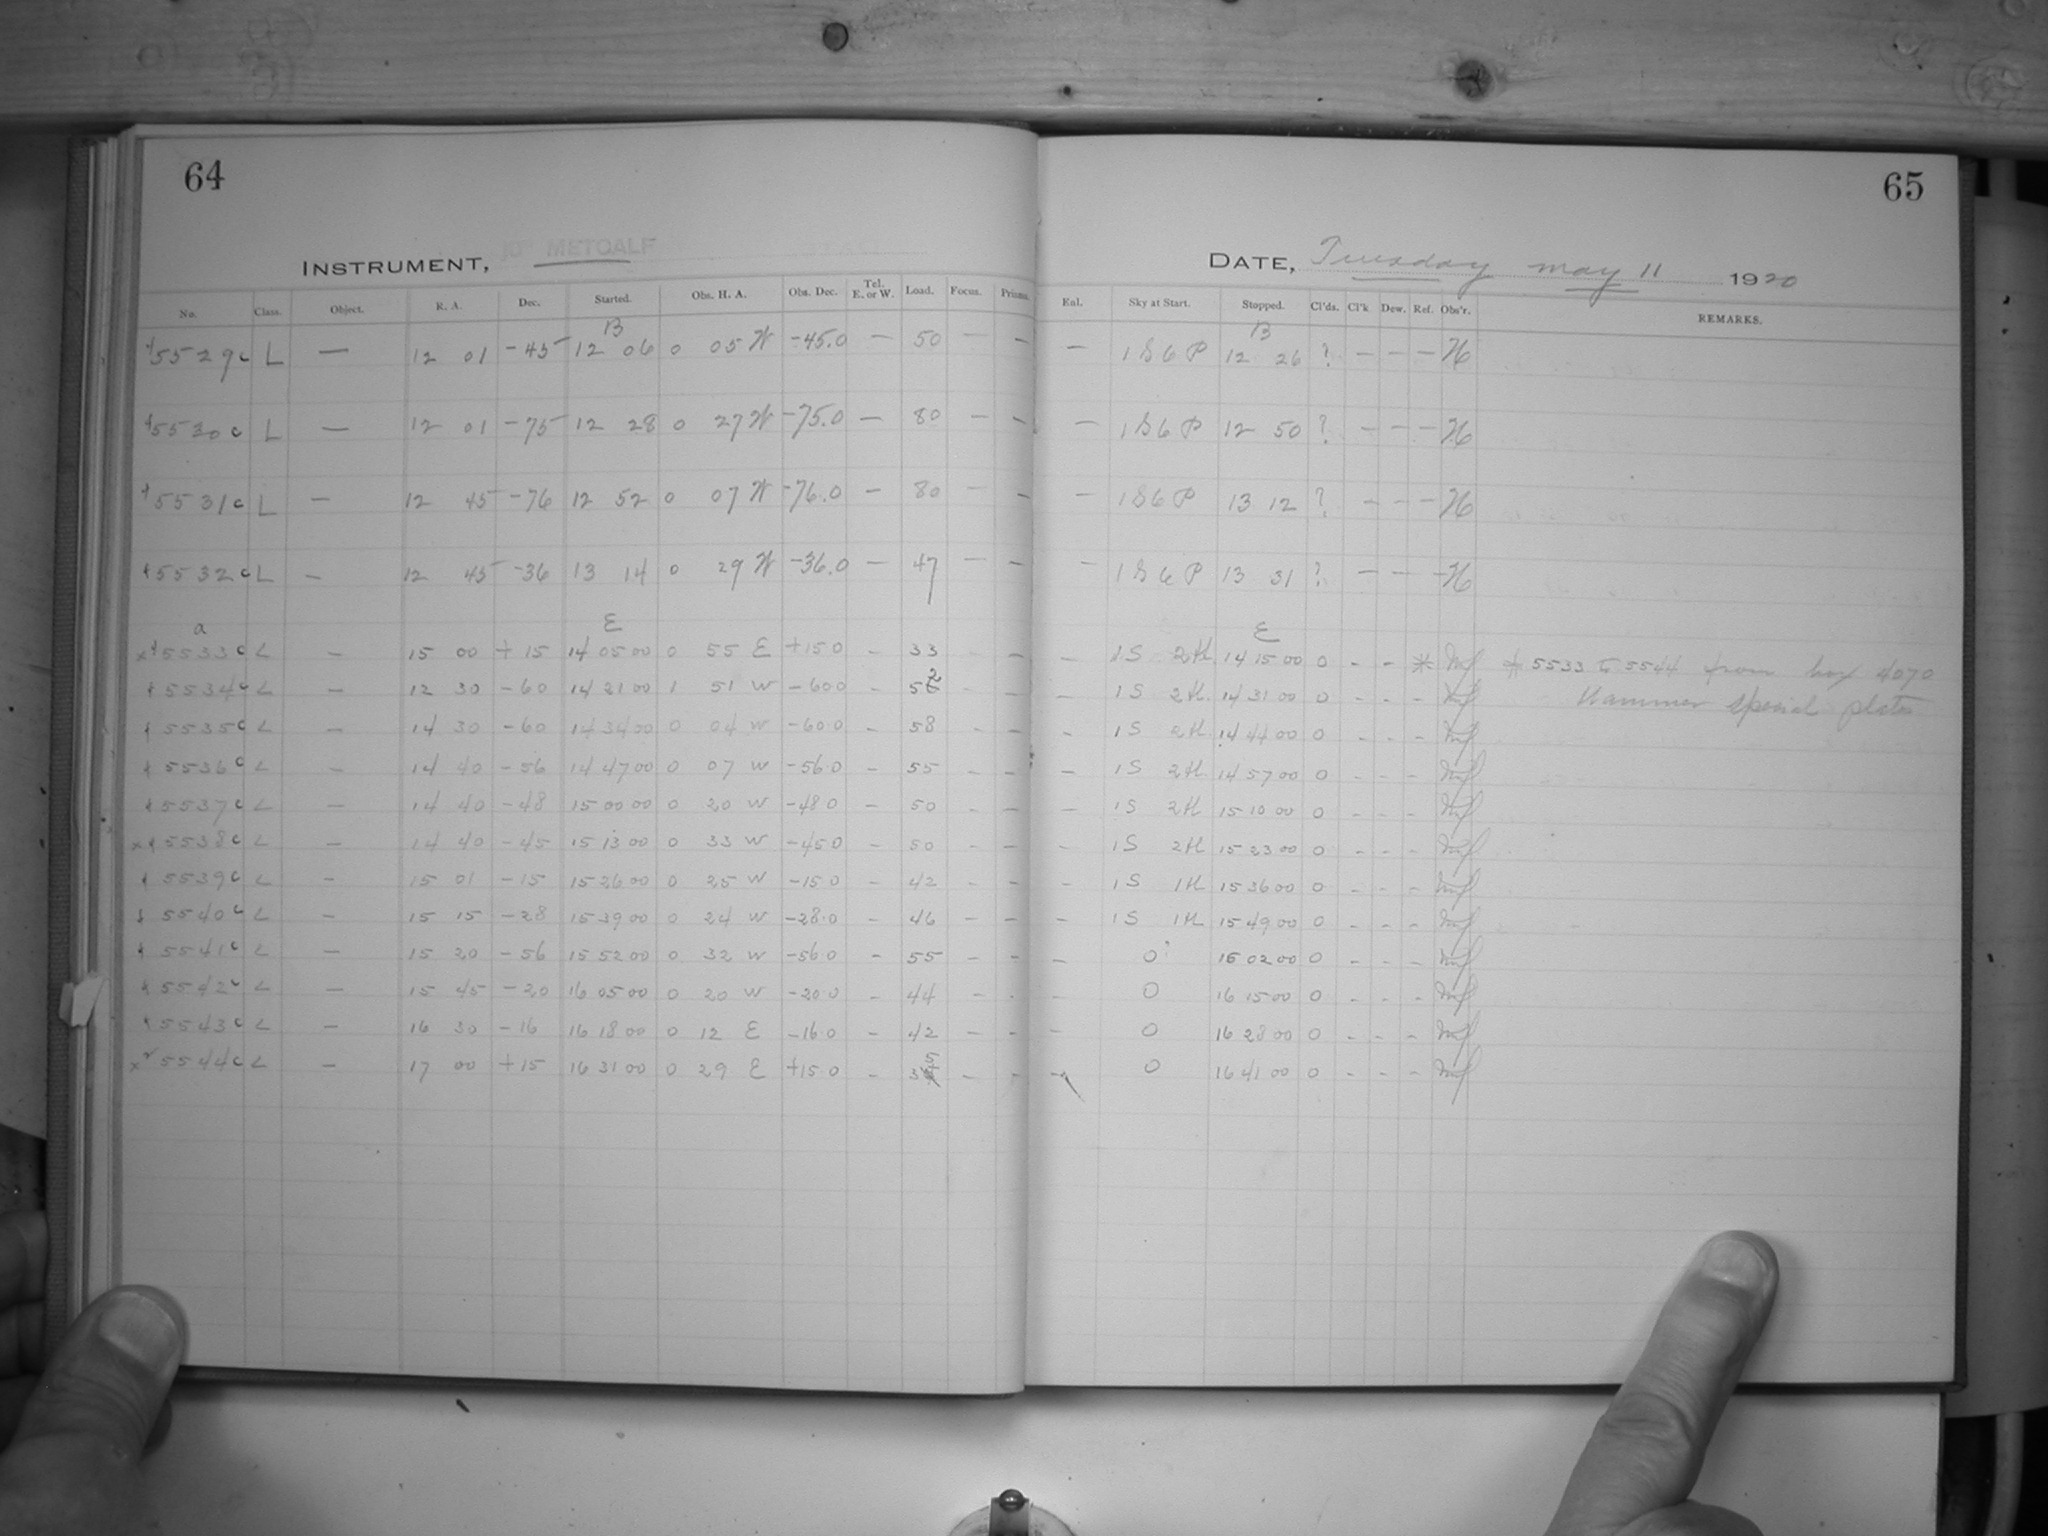 64
65
INSTRUMENT, METCALF
DATE, Tuesday May 11 1920
No. Class. Object. R. A. Dec. Started. Obs. H. A. Obs. Dec. Tel. E. or W. Load. Focus. Prisms. Enl. Sky at Start. Stopped. Cl'ds. Cl'k Dew. Ref. Obs'r. REMARKS.
B B
5529c L — 12 01 -45 12 06 0 05 W -45.0 — 50 — — — 1 S 6 P 12 26 ? — — — H
5530c L — 12 01 -75 12 28 0 27 W -75.0 — 80 — — — 1 S 6 P 12 50 ? — — — H
5531c L — 12 45 -76 12 52 0 07 W -76.0 — 80 — — 1 S 6 P 13 12 ? — — — H
5532c L — 12 45 -36 13 14 0 29 W -36.0 — 47 — — — 1 S 6 P 13 31 ? — — — H
a E E
x 5533c L — 15 00 +15 14 05 00 0 55 E +15 0 - 33 - 1 S 2 H 14 15 00 0 - - * * 5533 to 5544 from box 4070
5534c L — 12 30 -60 14 21 00 1 51 W -60 0 - 52 - - - 1 S 2 H. 14 31 00 0 - - - Hammer special plates
5535c L — 14 30 -60 14 34 00 0 04 W -60 0 - 58 - - - 1 S 2 H. 14 44 00 0 - - -
5536c L — 14 40 -56 14 47 00 0 07 W -56 0 - 55 - - - 1 S 2 H 14 57 00 0 - - -
5537c L — 14 40 -48 15 00 00 0 20 W -48 0 - 50 - - - 1 S 2 H 15 10 00 0 - - -
x 5538c L — 14 40 -45 15 13 00 0 33 W -45 0 - 50 - - - 1 S 2 H 15 23 00 0 - - -
5539c L — 15 01 -15 15 26 00 0 25 W -15 0 - 42 - - - 1 S 1 H 15 36 00 0 - - -
5540c L — 15 15 -28 15 39 00 0 24 W -28.0 - 46 - - - 1 S 1 H 15 49 00 0 - - -
5541c L — 15 20 -56 15 52 00 0 32 W -56 0 - 55 - - - 0 16 02 00 0 - - -
5542c L — 15 45 -20 16 05 00 0 20 W -20 0 - 44 - - - 0 16 15 00 0 - - -
5543c L — 16 30 -16 16 18 00 0 12 E -16.0 - 42 - - - 0 16 28 00 0 - - -
x 5544c L — 17 00 +15 16 31 00 0 29 E +15 0 - 35 - - - 0 16 41 00 0 - - -